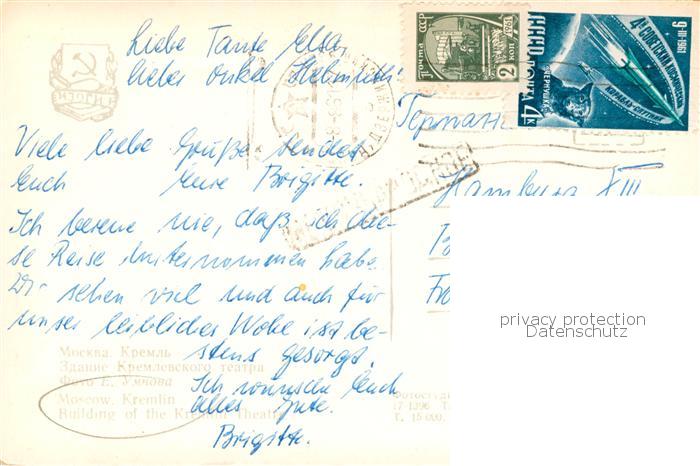 Liebe Tante Elsa,
lieber Onkel Hellmuth!
Viele liebe Grüße sendet
Euch Eure Brigitte.
Ich bereue nie, daß ich die-
se Reise unternommen habe.
Wir sehen viel und auch für
unser leibliches Wohl ist be-
stens gesorgt.
Ich wünsche Euch
alles Gute.
Brigitte.
Москва. Кремль
Здание Кремлевского театра
Фото Е. Умнова
Moscow. Kremlin
Building of the Kremlin Theatre
ПОЧТА СССР
1961
2
КОП
6-III-1961
4й СОВЕТСКИЙ КОСМИЧЕСКИЙ
КОРАБЛЬ-СПУТНИК
ПОЧТА СССР
"ЧЕРНУШКА"
4К
Германия
Hamburg XIII
privacy protection
Datenschutz
17-1396
Т. 15 000.